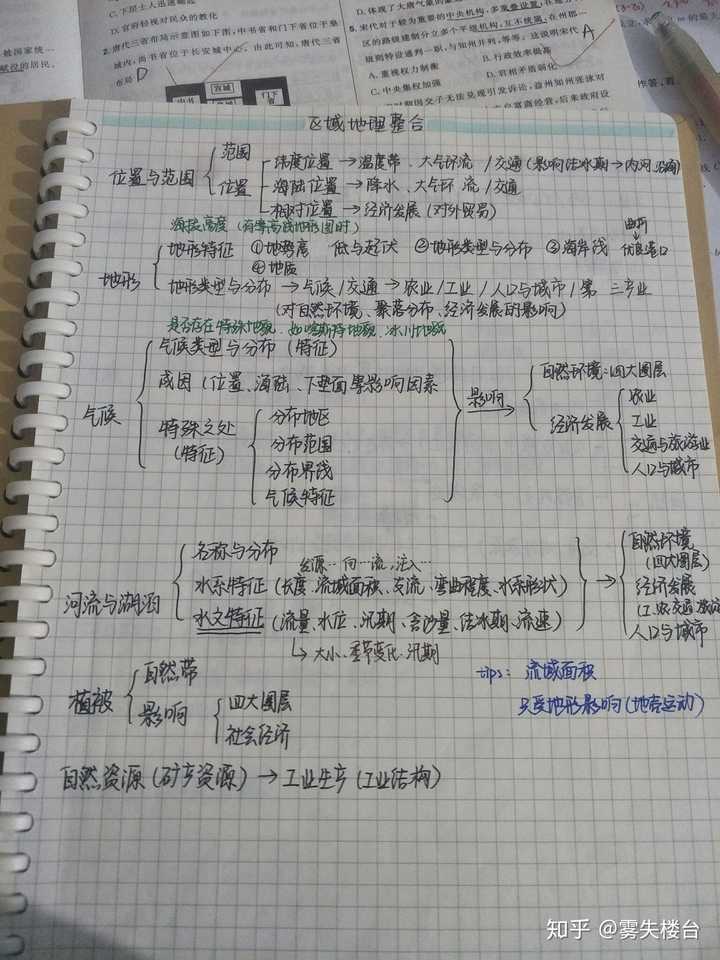 C. 下层士人迅速崛起
D. 官府轻视对民众的教化
2. 唐代三省布局示意图如下图,中书省和门下省位于皇
城内,尚书省位于长安城中心。由此可知,唐代三省
布局 D
宫城
中书
门下
省
被国家统…
赋役的居民。
D. 体现了大唐气象的
5. 宋代对于较为重要的中央机构,多重叠设置,在地方
区的路级建制分立多个平级机构,互不统属;在州郡…
级则特设通判一职,与知州并列,等等。这说明宋代 A
A. 重视权力制衡
B. 行政效率极高
C. 中央集权加强
D. 君相矛盾弱化
区域地理整合
位置与范围
范围
位置
纬度位置→温度带、大气环流/交通(影响结冰期→内河、沿海)
海陆位置→降水、大气环流/交通
相对位置→经济发展(对外贸易)
海拔高度(有等高线地形图时)
曲折
↓
优良港口
地形
地形特征 ①地势高低与起伏 ②地形类型与分布 ③海岸线
④地质
地形类型与分布→气候/交通→农业/工业/人口与城市/第三产业
(对自然环境、聚落分布、经济发展的影响)
是否存在特殊地貌,如喀斯特地貌、冰川地貌
气候
气候类型与分布(特征)
成因(位置、海陆、下垫面等影响因素
特殊之处
(特征)
分布地区
分布范围
分布界线
气候特征
影响→
自然环境:四大圈层
经济发展
农业
工业
交通与旅游业
人口与城市
河流与湖泊
名称与分布
发源…向…流,注入…
水系特征(长度、流域面积、支流、弯曲程度、水系形状)
水文特征(流量、水位、汛期、含沙量、结冰期、流速)
↳大小、季节变化、汛期
→
自然环境
(四大圈层)
经济发展
(工、农、交通、旅游
人口与城市
植被
自然带
影响
四大圈层
社会经济
tips: 流域面积
只受地形影响(地壳运动)
自然资源(矿产资源)→工业生产(工业结构)
知乎 @雾失楼台